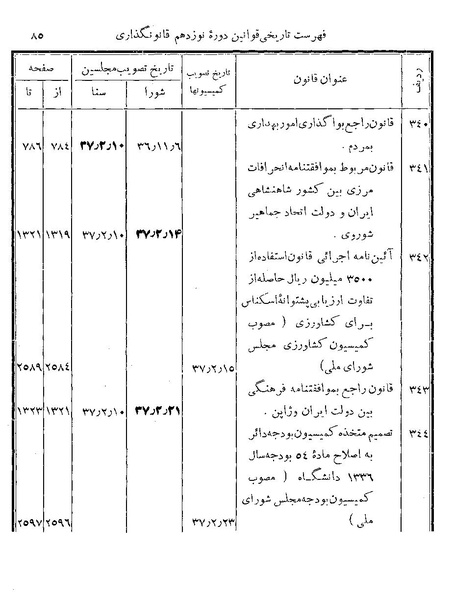 فهرست تاریخی قوانین دورهٔ نوزدهم قانونگذاری ۸۵
ردیف
عنوان قانون
تاریخ تصویب کمیسیونها
تاریخ تصویب مجلسین
شورا
سنا
صفحه
از
تا
۳۴۰ قانون راجع بواگذاری امور بهداری
بمردم . ۳۶٫۱۱٫۶ ۳۷٫۲٫۱۰ ۷۸۴ ۷۸۶
۳۴۱ قانون مربوط بموافقتنامه انحرافات
مرزی بین کشور شاهنشاهی
ایران و دولت اتحاد جماهیر
شوروی . ۳۷٫۲٫۱۴ ۳۷٫۲٫۱۰ ۱۳۱۹ ۱۳۲۱
۳۴۲ آئین نامه اجرائی قانون استفاده از
۳۵۰۰ میلیون ریال حاصله از
تفاوت ارزیابی پشتوانهٔ اسکناس
برای کشاورزی ( مصوب
کمیسیون کشاورزی مجلس
شورای ملی) ۳۷٫۲٫۱۵ ۲۵۸۴ ۲۵۸۹
۳۴۳ قانون راجع بموافقتنامه فرهنگی
بین دولت ایران و ژاپن . ۳۷٫۲٫۲۱ ۳۷٫۲٫۱۰ ۱۳۲۱ ۱۳۲۳
۳۴۴ تصمیم متخذه کمیسیون بودجه دائر
به اصلاح مادهٔ ۵۴ بودجه سال
۱۳۳۶ دانشگاه ( مصوب
کمیسیون بودجه مجلس شورای
ملی ) ۳۷٫۲٫۲۳ ۲۵۹۶ ۲۵۹۷